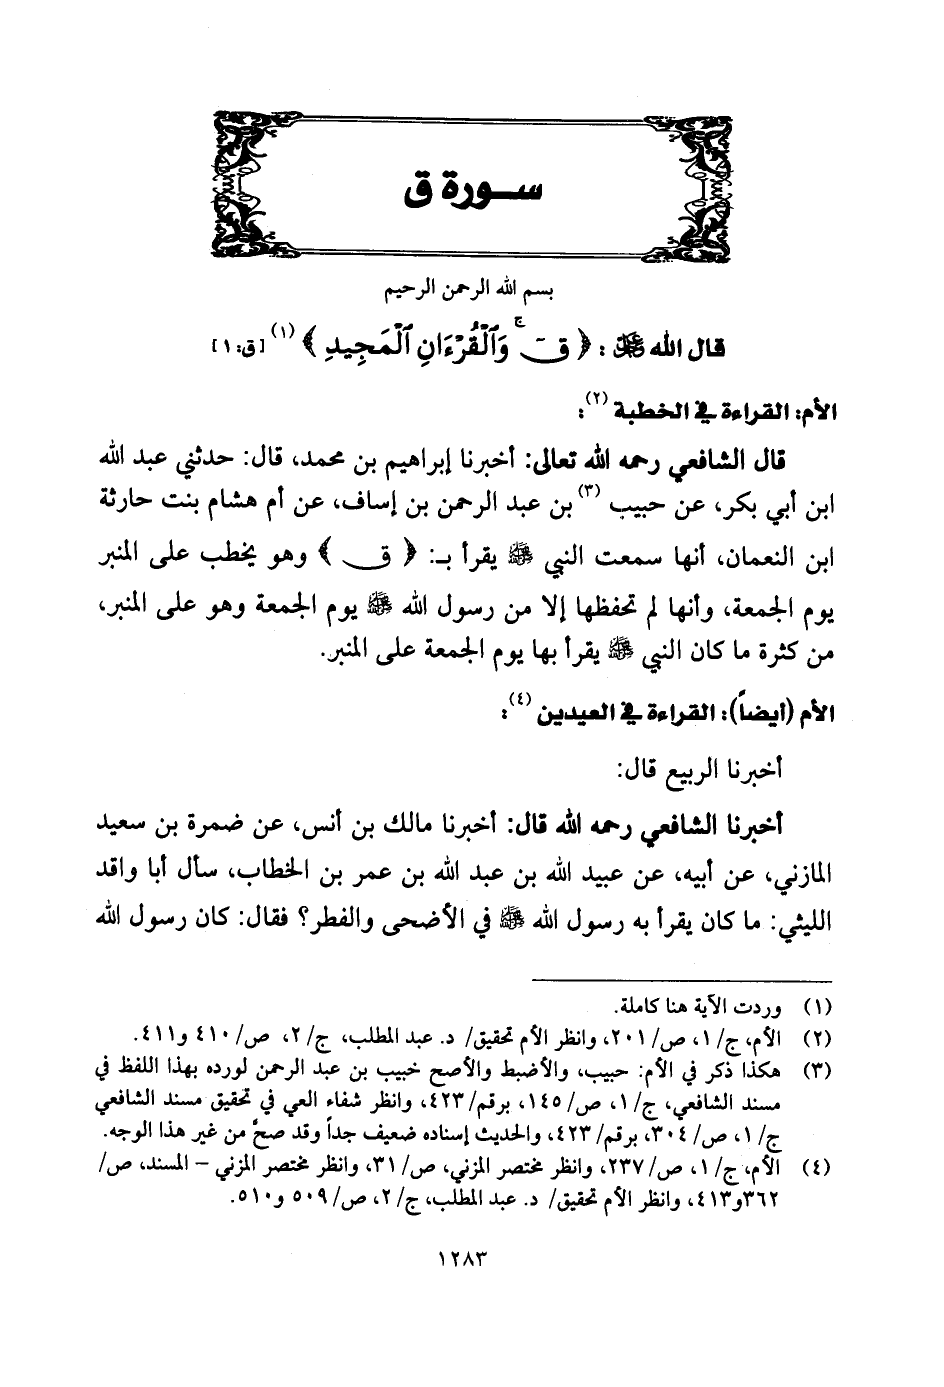 سورة ق
بسم الله الرحمن الرحيم
قال الله ﷻ : ﴿ قٓ ۚ وَٱلْقُرْءَانِ ٱلْمَجِيدِ ﴾ (١) [ق: ١]
الأم: القراءة في الخطبة (٢):
قال الشافعي رحمه الله تعالى: أخبرنا إبراهيم بن محمد، قال: حدثني عبد الله
ابن أبي بكر، عن حبيب (٣) بن عبد الرحمن بن إساف، عن أم هشام بنت حارثة
ابن النعمان، أنها سمعت النبي ﷺ يقرأ بـ: ﴿ ق ﴾ وهو يخطب على المنبر
يوم الجمعة، وأنها لم تحفظها إلا من رسول الله ﷺ يوم الجمعة وهو على المنبر،
من كثرة ما كان النبي ﷺ يقرأ بها يوم الجمعة على المنبر.
الأم (أيضاً): القراءة في العيدين (٤):
أخبرنا الربيع قال:
أخبرنا الشافعي رحمه الله قال: أخبرنا مالك بن أنس، عن ضمرة بن سعيد
المازني، عن أبيه، عن عبيد الله بن عبد الله بن عمر بن الخطاب، سأل أبا واقد
الليثي: ما كان يقرأ به رسول الله ﷺ في الأضحى والفطر؟ فقال: كان رسول الله
(١) وردت الآية هنا كاملة.
(٢) الأم، ج/ ١، ص/ ٢٠١، وانظر الأم تحقيق/ د. عبد المطلب، ج/ ٢، ص/ ٤١٠ و٤١١.
(٣) هكذا ذكر في الأم: حبيب، والأضبط والأصح خبيب بن عبد الرحمن لورده بهذا اللفظ في
مسند الشافعي، ج/ ١، ص/ ١٤٥، برقم/ ٤٢٣، وانظر شفاء العي في تحقيق مسند الشافعي
ج/ ١، ص/ ٣٠٤، برقم/ ٤٢٣، والحديث إسناده ضعيف جداً وقد صحَّ من غير هذا الوجه.
(٤) الأم، ج/ ١، ص/ ٢٣٧، وانظر مختصر المزني، ص/ ٣١، وانظر مختصر المزني – المسند، ص/
٣٦٢و٤١٣، وانظر الأم تحقيق/ د. عبد المطلب، ج/ ٢، ص/ ٥٠٩ و٥١٠.
١٢٨٣